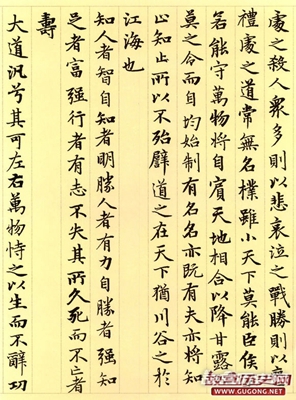 處之殺人衆多則以悲哀泣之戰勝則以喪
禮處之道常無名樸雖小天下莫能臣侯
若能守萬物將自賓天地相合以降甘露
莫之令而自均始制有名名亦既有夫亦將知
止知止所以不殆譬道之在天下猶川谷之於
江海也
知人者智自知者明勝人者有力自勝者强知
足者富强行者有志不失其所久死而不亡者
壽
大道汎兮其可左右萬物恃之以生而不辭功
WWW.GUGONG.NET